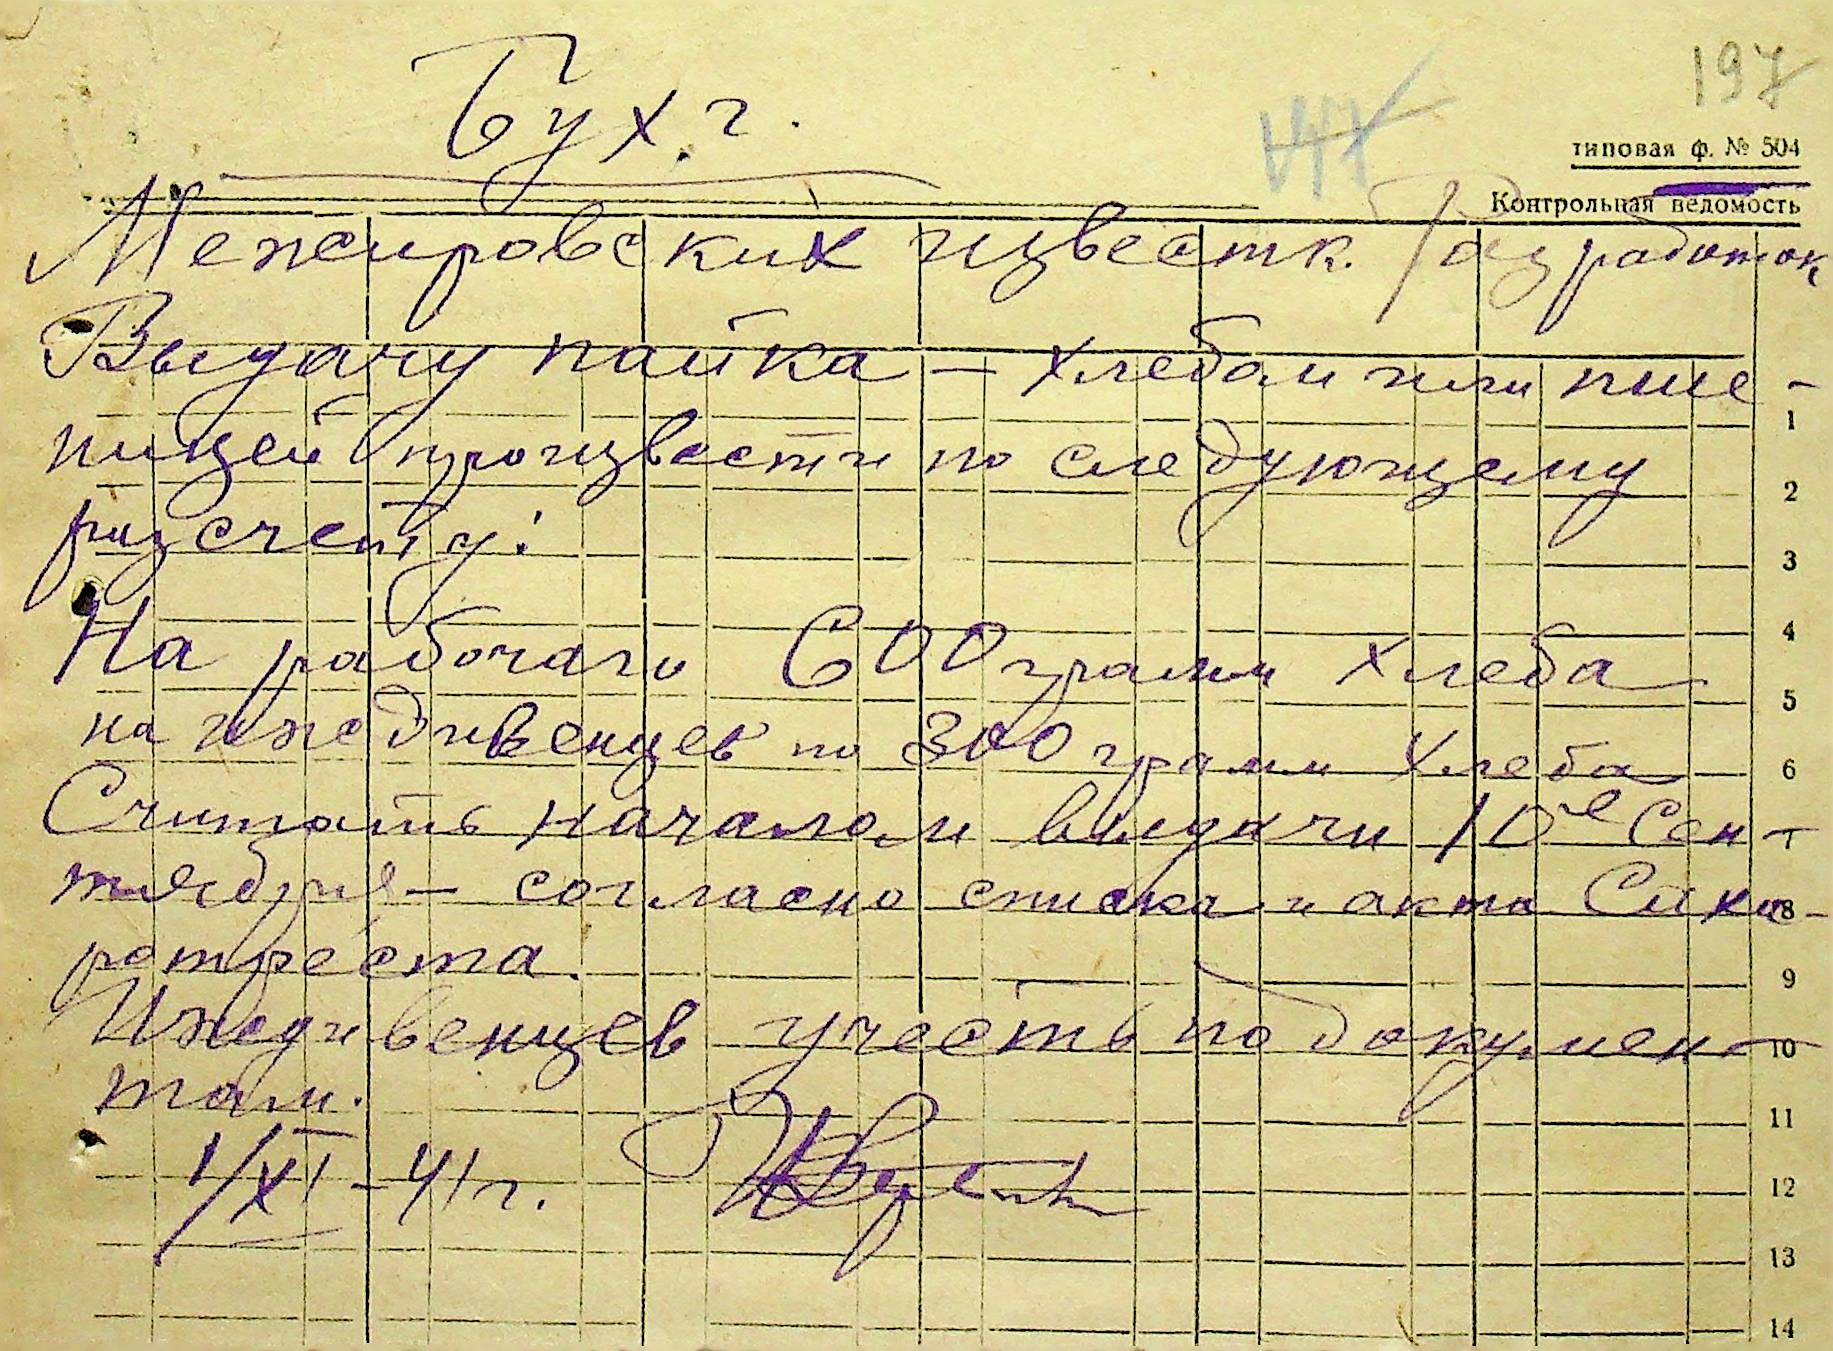 197
147
типовая ф. № 504
Контрольная ведомость
Бух. г.
Межировских известк. Разработок
Выдачу пайка — хлебом или пше-
ницей произвести по следующему
разсчету:
На рабочаго 600 грамм хлеба
на иждивенцев по 300 грамм хлеба
Считать началом выдачи 10е Сен-
тября — согласно списка и акта Саха-
ротреста.
Иждивенцев учесть по докумен-
там.
1/XI - 41 г.
1
2
3
4
5
6
7
8
9
10
11
12
13
14